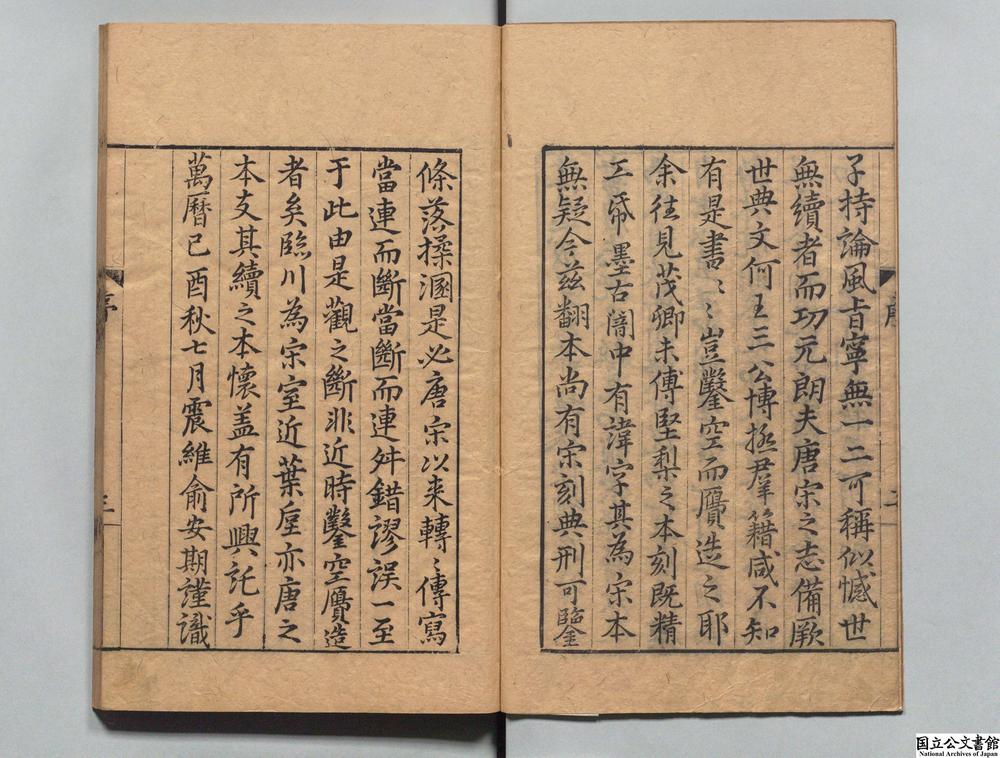 子持論風旨寧無一二可稱似憾世
無續者而功元朗夫唐宋之志備厥
世典文何王三公博極羣籍咸不知
有是書〻豈鑿空而贋造之耶
余往見茂卿未傅堅梨之本刻既精
工帋墨古闇中有諱字其為宋本
無疑今兹翻本尚有宋刻典刑可鑒
序
三
條落操溷是必唐宋以来轉〻傳寫
當連而斷當斷而連舛錯謬誤一至
于此由是觀之斷非近時鑿空贋造
者矣臨川為宋室近葉垕亦唐之
本支其續之本懷盖有所興託乎
萬曆己酉秋七月震維俞安期謹識
国立公文書館
National Archives of Japan